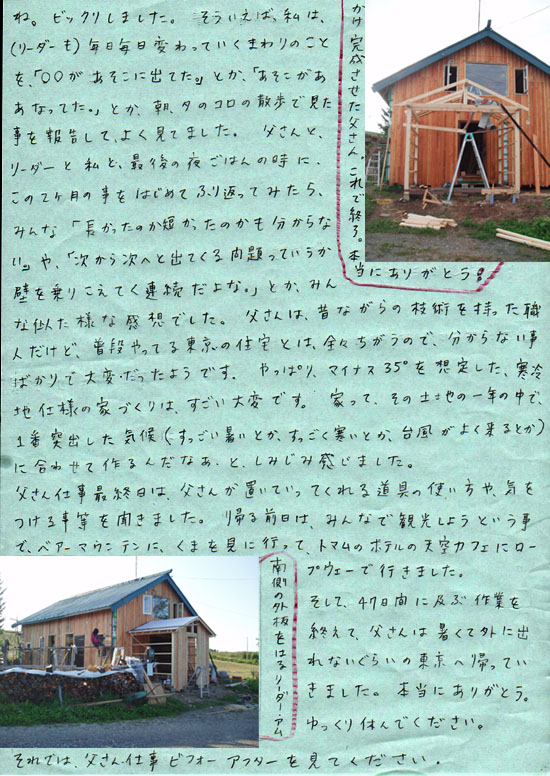 ね。ビックリしました。 そういえば、私は、
(リーダーも)毎日毎日変わっていくまわりのこと
を、「○○があそこに出てた。」とか、「あそこがああ
なってた。」とか、朝、夕のコロの散歩で見た
事を報告して、よく見てました。 父さんと、
リーダーと私と、最後の夜ごはんの時に、
この2ヶ月の事をはじめてふり返ってみたら、
みんな「長かったのか短かったのかも分からな
い」や、「次から次へと出てくる問題っていうか
壁を乗りこえてく連続だよな。」とか、みん
な似た様な感想でした。 父さんは、昔ながらの技術を持った職
人だけど、普段やってる東京の住宅とは、全々ちがうので、分からない事
ばかりで大変だったようです。 やっぱり、マイナス35°を想定した、寒冷
地仕様の家づくりは、すごい大変です。 家って、その土地の一年の中で、
1番突出した気候(すっごい暑いとか、すっごく寒いとか、台風がよく来るとか)
に合わせて作るんだなあ、と、しみじみ感じました。
父さん仕事最終日は、父さんが置いていってくれる道具の使い方や、気を
つける事等を聞きました。 帰る前日は、みんなで観光しようという事
で、ベアーマウンテンに、くまを見に行って、トマムのホテルの天空カフェにロー
プウェーで行きました。
そして、47日間に及ぶ作業を
終えて、父さんは暑くて外に出
れないぐらいの東京へ帰ってい
きました。 本当にありがとう。
ゆっくり休んでください。
それでは、父さん仕事 ビフォー アフターを見てください。
かけ完成させた父さん。これで終る。本
当にありがとう!
南側の外板をはるリーダー・アム